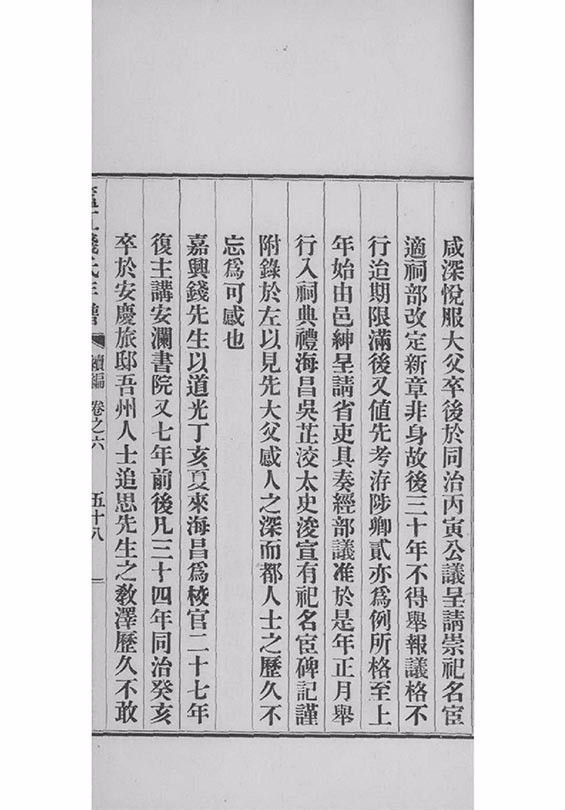 咸深悅服大父卒後於同治丙寅公議呈請崇祀名宦
適祠部改定新章非身故後三十年不得舉報議格不
行迨期限滿後又值先考洊陟卿貳亦爲例所格至上
年始由邑紳呈請省吏具奏經部議准於是年正月舉
行入祠典禮海昌吳芷洨太史浚宣有祀名宦碑記謹
附錄於左以見先大父感人之深而都人士之歷久不
忘爲可感也
嘉興錢先生以道光丁亥夏來海昌爲校官二十七年
復主講安瀾書院又七年前後凡三十四年同治癸亥
卒於安慶旅邸吾州人士追思先生之敎澤歷久不敢
錢氏 續編 卷之六 五十八